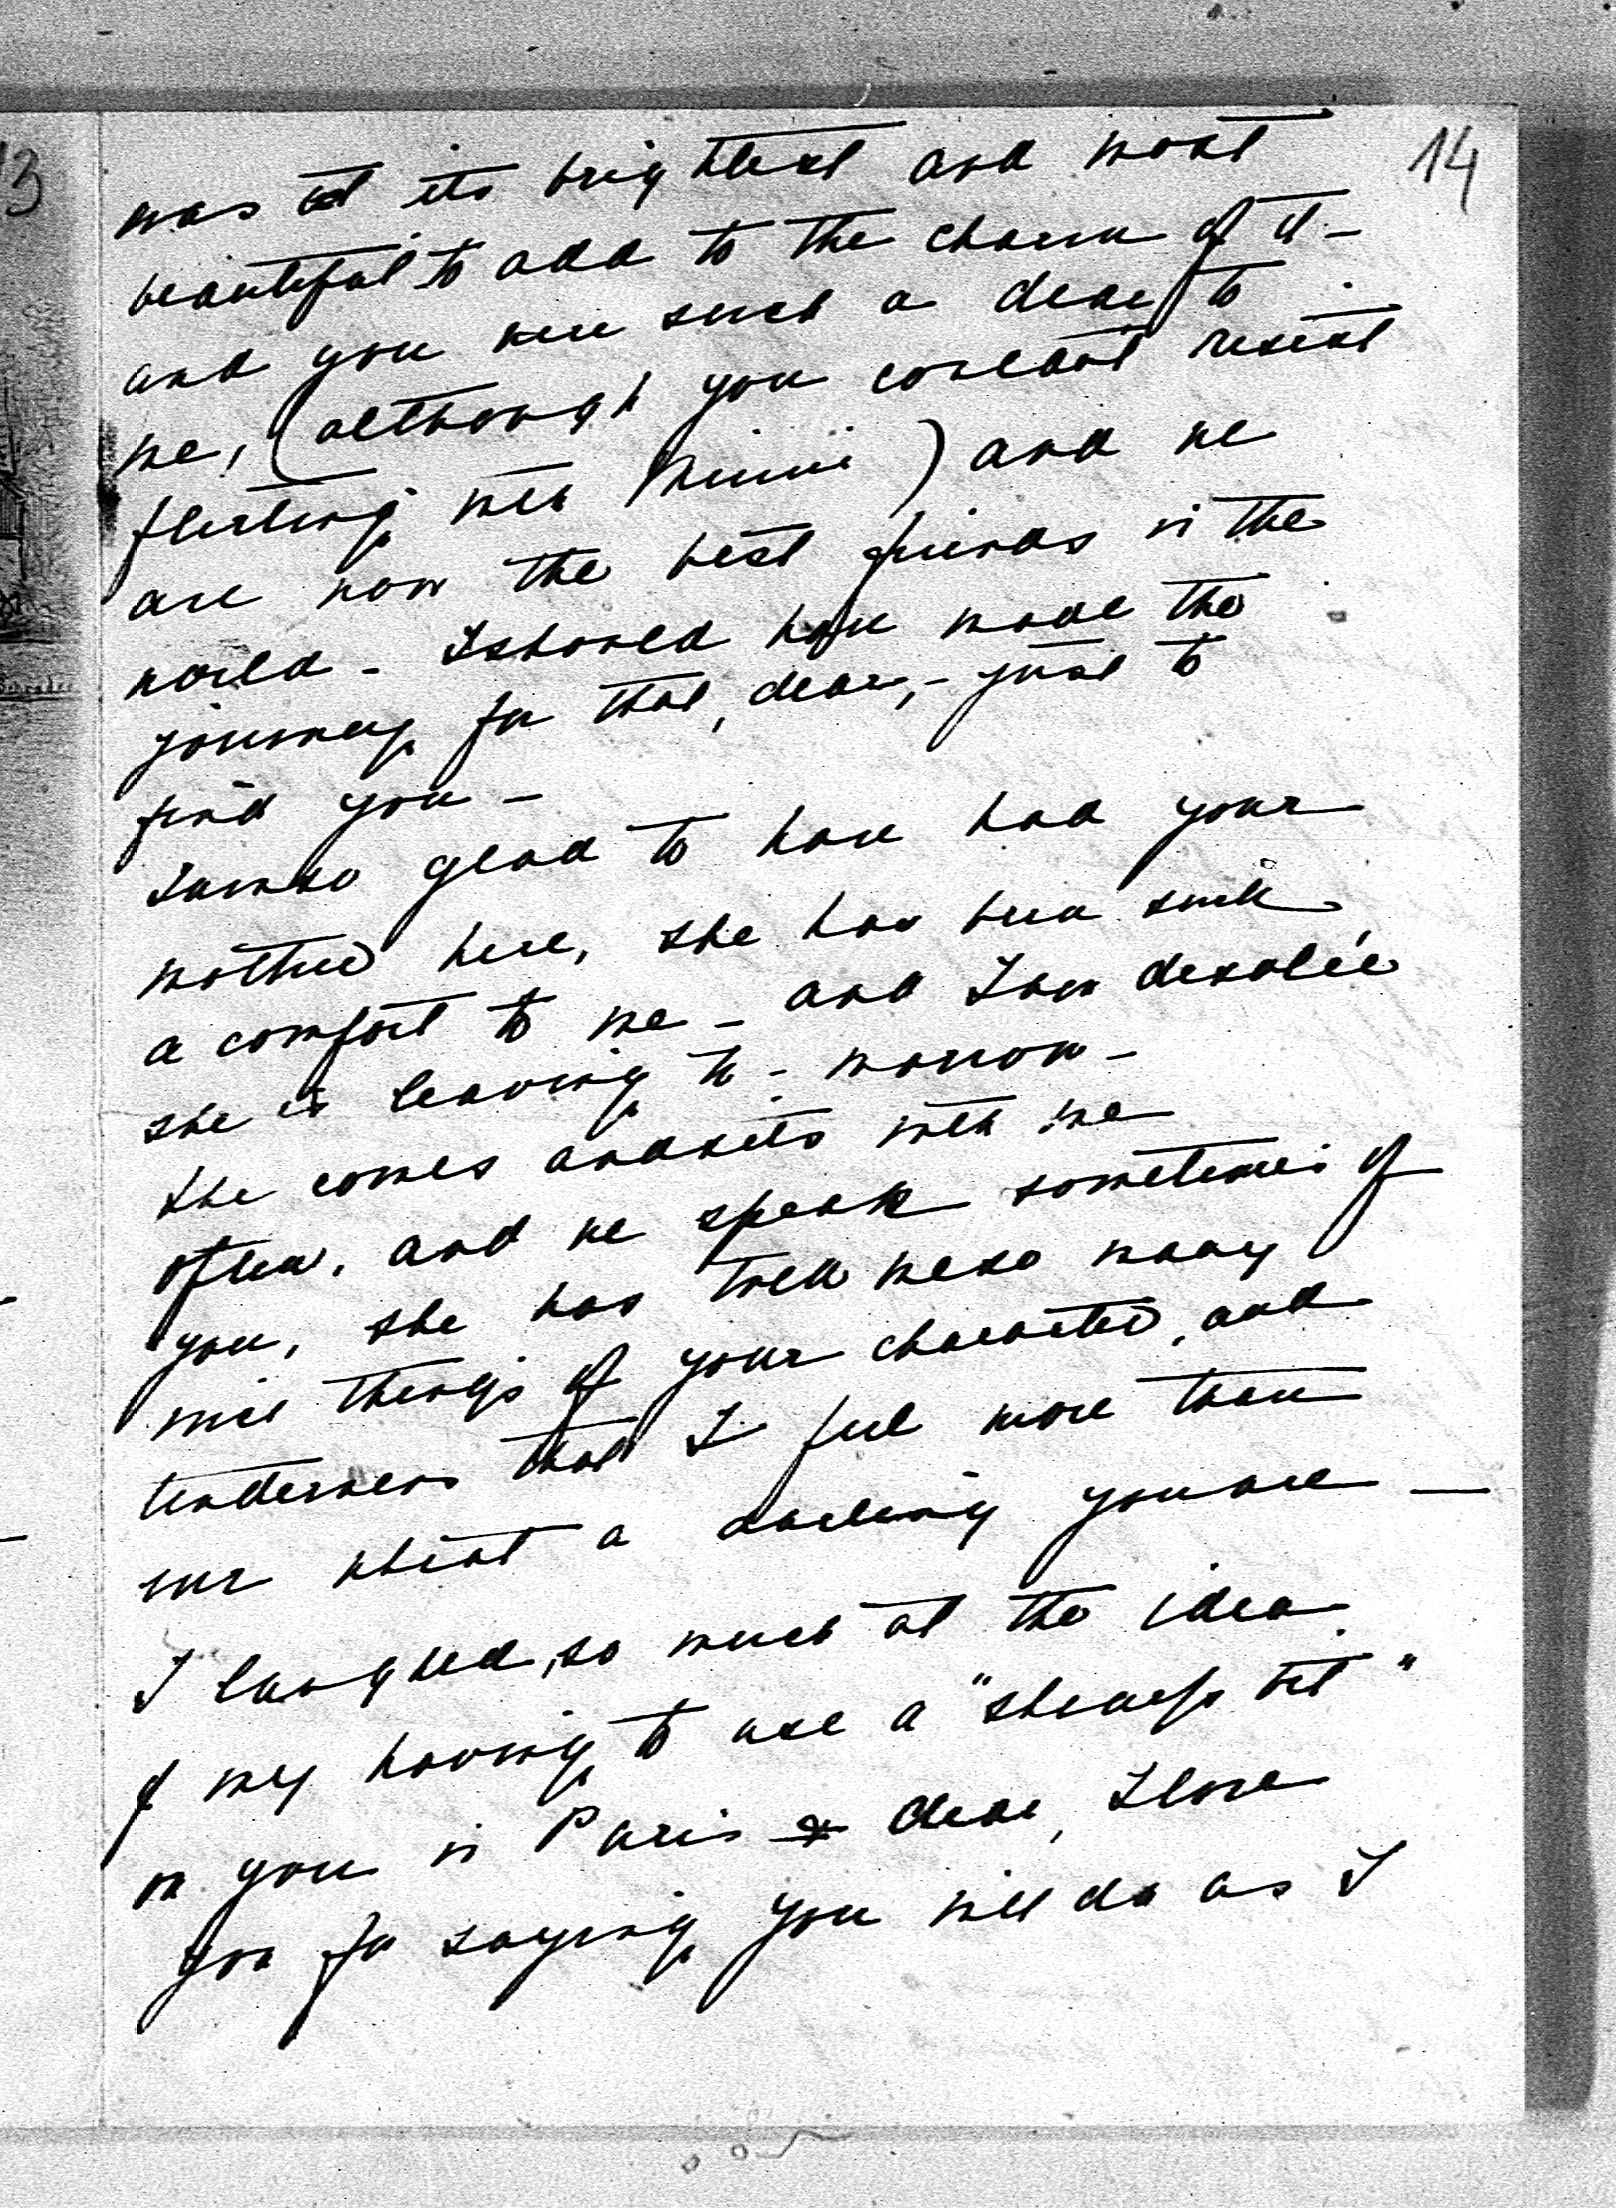 14
was at its brightest and most
beautiful to add to the charm of it -
and you were such a dear to
me, (although you couldnt resist
flirting with Minnie) and we
are now the best friends in the
world - I should have made the
journey for that, dear, - just to
find you -
I am so glad to have had your
mother here, she has been such
a comfort to me - and I am desolée
she is leaving to-morrow -
She comes and sits with me
often, and we speak sometimes of
you, she has told me so many
nice things of your character, and
tenderness that I feel more than
ever what a darling you are —
I laughed, so much at the idea
of my having to use a "sharp bit"
on you in Paris dear, I love
you for saying you will do as I